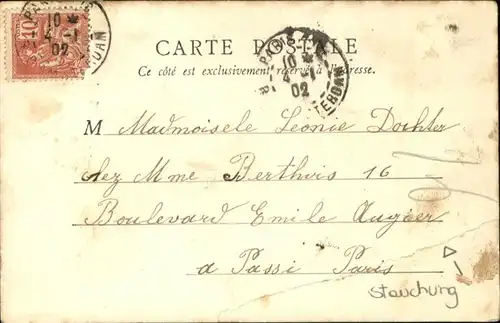 10
PARIS
10
4 -1
02
CARTE POSTALE
Ce côté est exclusivement réservé à l'adresse.
PARIS
10
4 -1
02
M Madmoisele Leonie Dochter
chez Mme Berthvis 16
Boulevard Emile Augier
a Passi Paris
Stauchung